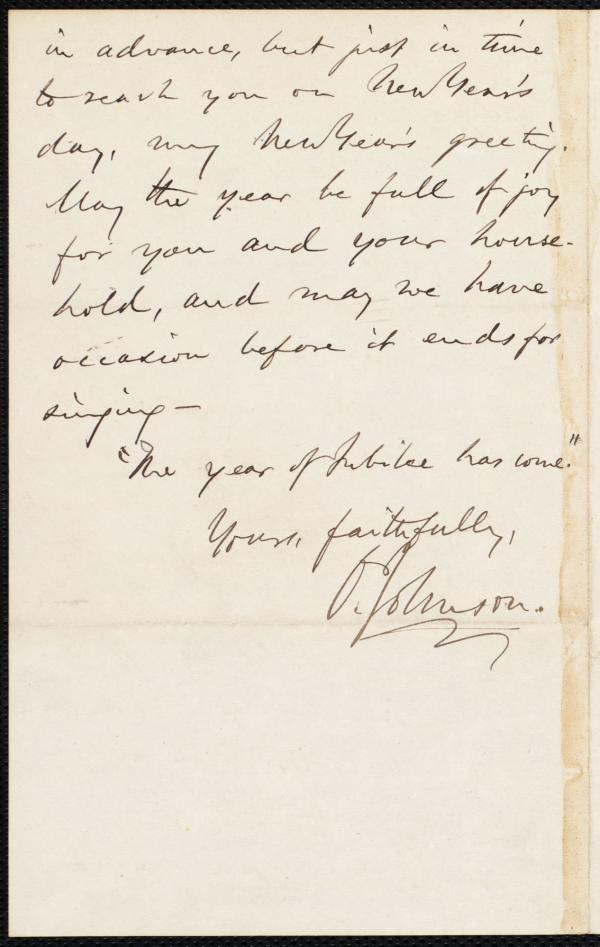 in advance, but just in time
to reach you on New Year's
day, my New Year's greeting.
May the year be full of joy
for you and your house-
hold, and may we have
occasion before it ends for
singing—
"The year of Jubilee has come."
Yours, faithfully,
O. Johnson.